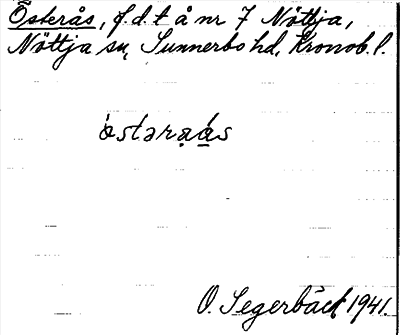 Österås, f.d.t å nr 7 Nöttja,
Nöttja sn, Sunnerbo hd, Kronob. l.
östəra̤ás
O. Segerbäck 1941.